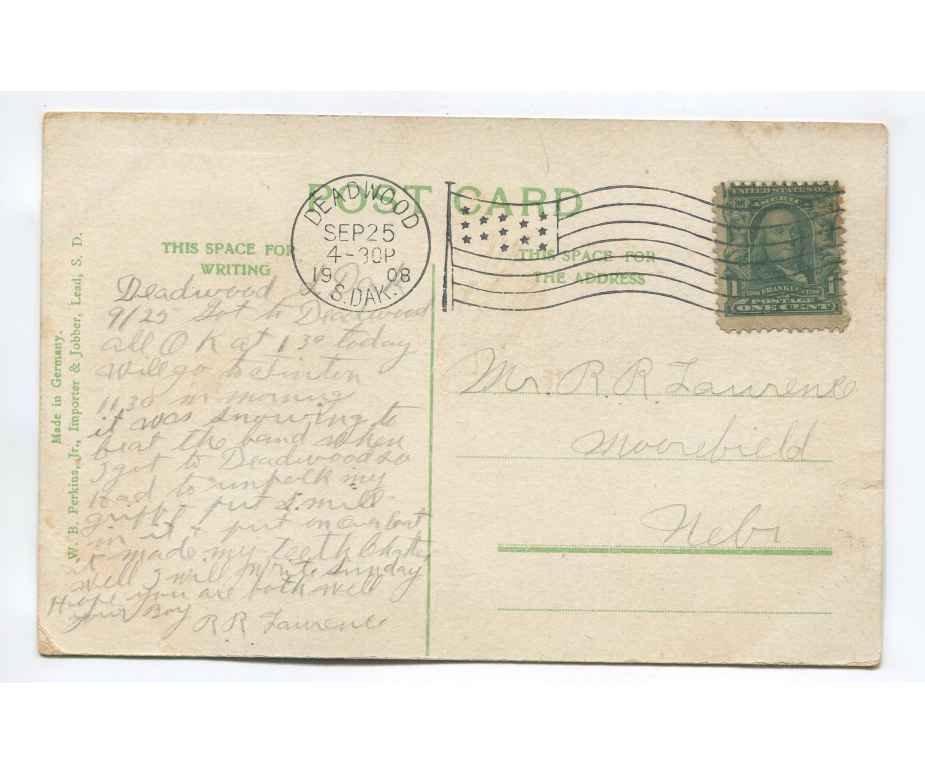 POST CARD
THIS SPACE FOR
WRITING
THIS SPACE FOR
THE ADDRESS
DEADWOOD
SEP 25
4-30P
1908
S.DAK.
UNITED STATES OF
AMERICA
FRANKLIN
POSTAGE
1 ONE CENT 1
Made in Germany.
W. B. Perkins, Jr., Importer & Jobber, Lead, S. D.
Deadwood S Dak
9/25 Got to Deadwood
all O K at 1 30 today
Will go to
11 30 in morning
it was snowing to
beat the band when
I got to Deadwood so
had to my
put
in it & put on Over Coat
it made my teeth Chatter
well I will write Sunday
Hope you are both well
your Boy
R R Lawrence
Mr. R. R. Lawrence
Moorefield
Nebr